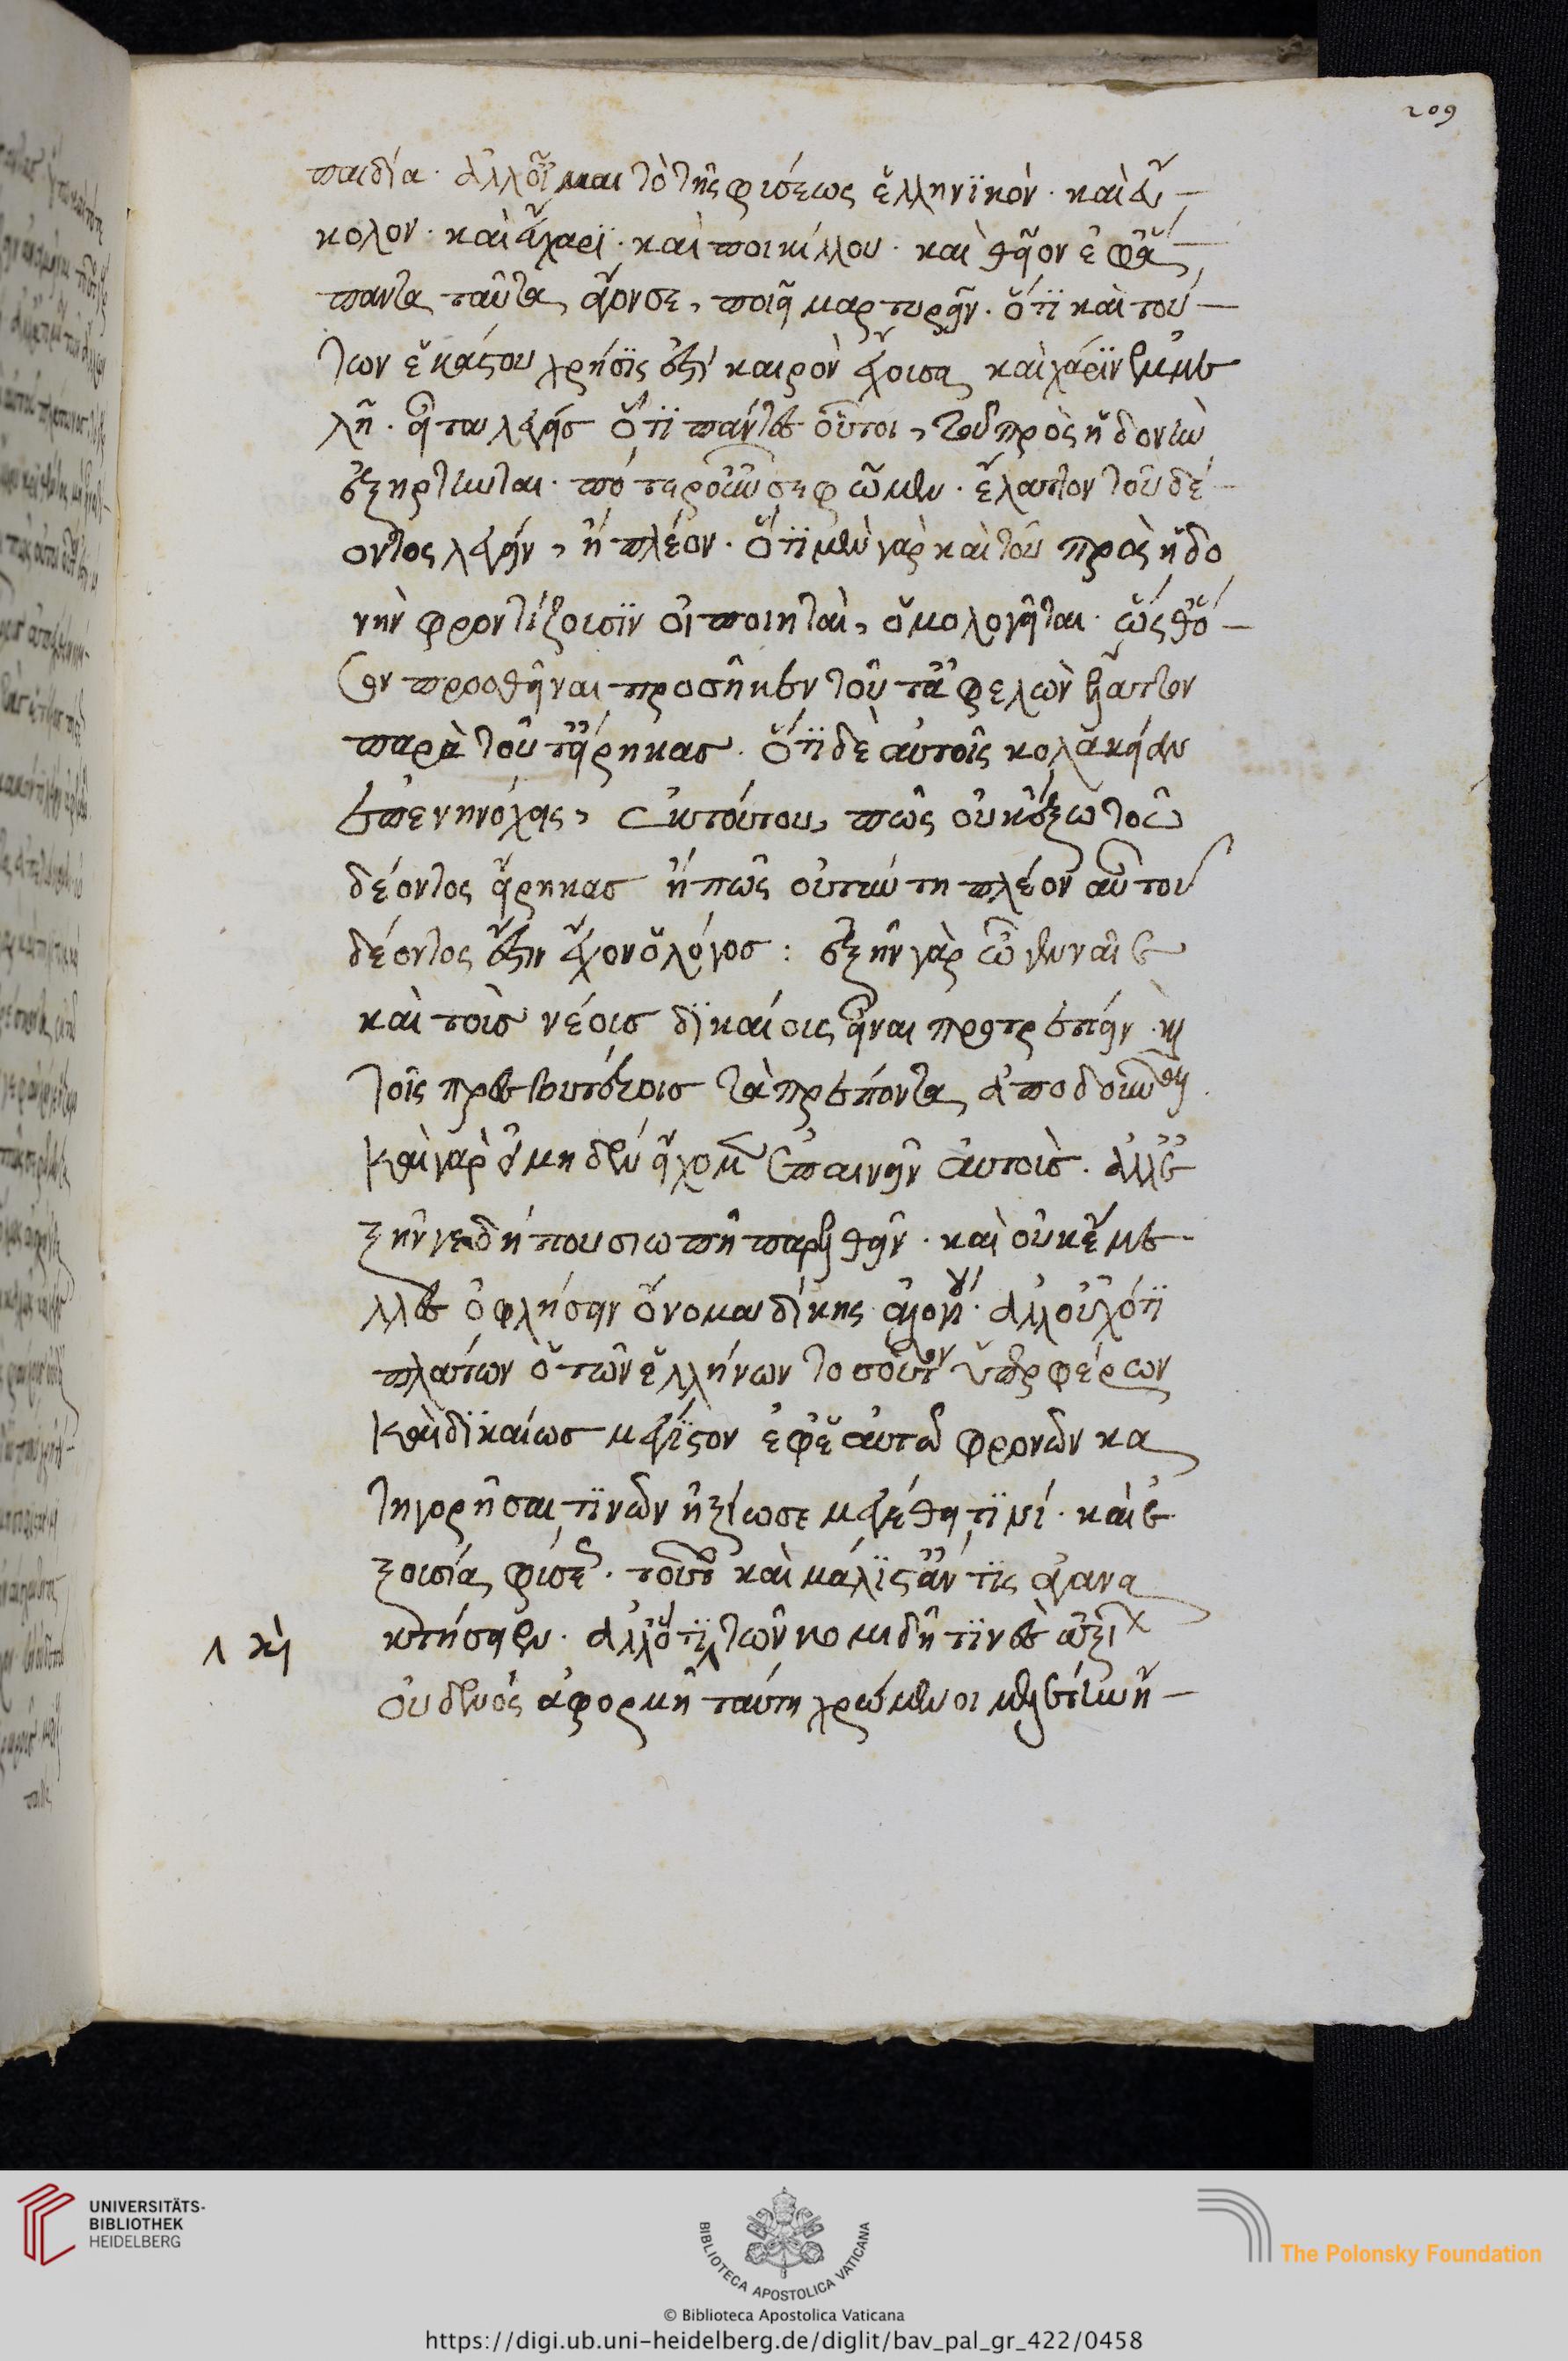 209
παιδία. ἀλλ' οἶμαι τὸ τῆς φύσεως ἑλληνικὸν. καὶ εὔ
κολον. καὶ εὔχαρι. καὶ ποικίλλον. καὶ θεῖον ἐφ' ἅ
παντα ταῦτα, ἄγον σε, ποιεῖ μαρτυρεῖν. ὅτι καὶ τού
των ἑκάστου χρῆσις ἐστὶ καιρὸν ἔχουσα καὶ χάριν ἐμμε
λῆ. εἶτα λέγεις ὅτι πάντες οὗτοι, τοῦ πρὸς ἡδονὴν
ἐξήρτηνται. πότερον οὖν σε φῶμεν. ἔλαττον τοῦ δέ
οντος λέγειν, ἢ πλέον. ὅτι μὲν γὰρ καὶ τοῦ πρὸς ἡδο
νὴν φροντίζουσιν οἱ ποιηταὶ, ὁμολογεῖται. ὥσθ' ὅ
περ προσθεῖναι προσῆκεν τοῦτ' ἀφελὼν ἔλαττον
παρὰ τοῦτ' εἴρηκας. ὅτι δὲ αὐτοῖς κολακείαν
ἐπενήνοχας, ἐκ τούτου, πῶς οὐκ ἔξω τοῦ
δέοντος εἴρηκας ἢ πῶς οὐ ταύτῃ πλέον αὖ τοῦ
δέοντος ἐστιν ἔχων ὁ λόγος: ἐξῆν γὰρ ὦ γενναῖε
καὶ τοῖς νέοις δικαίοις εἶναι προτρέπειν. καὶ
τοῖς πρεσβυτέροις τὰ πρέποντα, ἀποδοῦναι.
καὶ γὰρ εἰ μηδὲν εἴχομεν ἐπαινεῖν αὐτοὶς. ἀλλ' ἐ
ξῆν γε δήπου σιωπῇ παρελθεῖν. καὶ οὐκ ἔμε
λλες ὀφλήσειν ὄνομα δίκης ἀγών. ἀλλ' οὐχ ὅτι
πλάτων ὁ τῶν ἑλλήνων τοσοῦτον ὑπερφέρων
καὶ δικαίως μέγιστον ἐφ' ἑαυτῷ φρονῶν κα
τηγορῆσαι τινῶν ἠξίωσε μεγέθει τινί. καὶ ἐ
ξουσίᾳ φύσεως. τοῦτο καὶ μάλιστ' ἄν τις ἀγανα
κτήσειεν. ἀλλ' ὅτι τῶν κομιδῇ τινὲς ἄξιοι
⁁ καὶ
οὐδενός ἀφορμῇ ταύτῃ χρώμενοι μελέτην ἤ
UNIVERSITÄTS-
BIBLIOTHEK
HEIDELBERG
BIBLIOTECA APOSTOLICA VATICANA
The Polonsky Foundation
© Biblioteca Apostolica Vaticana
https://digi.ub.uni-heidelberg.de/diglit/bav_pal_gr_422/0458